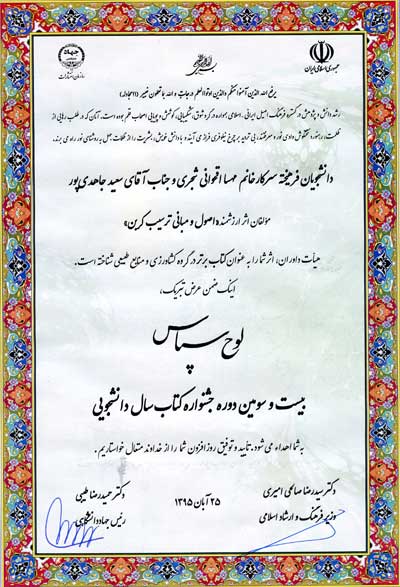 جمهوری اسلامی ایران
جهاد دانشگاهی
سازمان انتشارات
یرفع الله الذین آمنوا منکم والذین اوتوا العلم درجات و الله بما تعملون خبیر (۱۱ مجادله)
رشد دانش و پژوهش در گستره فرهنگ اصیل ایرانی ـ اسلامی همواره در گرو شوق، شکیبایی، کوشش و پویایی اصحاب قلم بوده است. آنان که در طلب رهایی از
ظلمت، رهنورد گفتگوی وادی نور معرفتند، بی تردید بر چرخ نیلوفری فراز می آیند و با دانش خویش، بشریت را از ظلمت جهل به روشنای نور راه می برند.
دانشجویان فرهیخته سرکار خانم مهسا اقوانی شجری و جناب آقای سعید جاهدی پور
مؤلفان اثر ارزشمند «اصول و مبانی ترسیب کربن»
هیأت داوران، اثر شما را به عنوان کتاب برتر در گروه کشاورزی و منابع طبیعی شناخته است.
اینک ضمن عرض تبریک،
لوح سپاس
بیست و سومین دوره جشنواره کتاب سال دانشجویی
به شما اهداء می شود. تأیید و توفیق روز افزون شما را از خداوند متعال خواستاریم.
دکتر سید رضا صالحی امیری
وزیر فرهنگ و ارشاد اسلامی
۲۵ آبان ۱۳۹۵
دکتر حمیدرضا طیبی
رئیس جهاد دانشگاهی